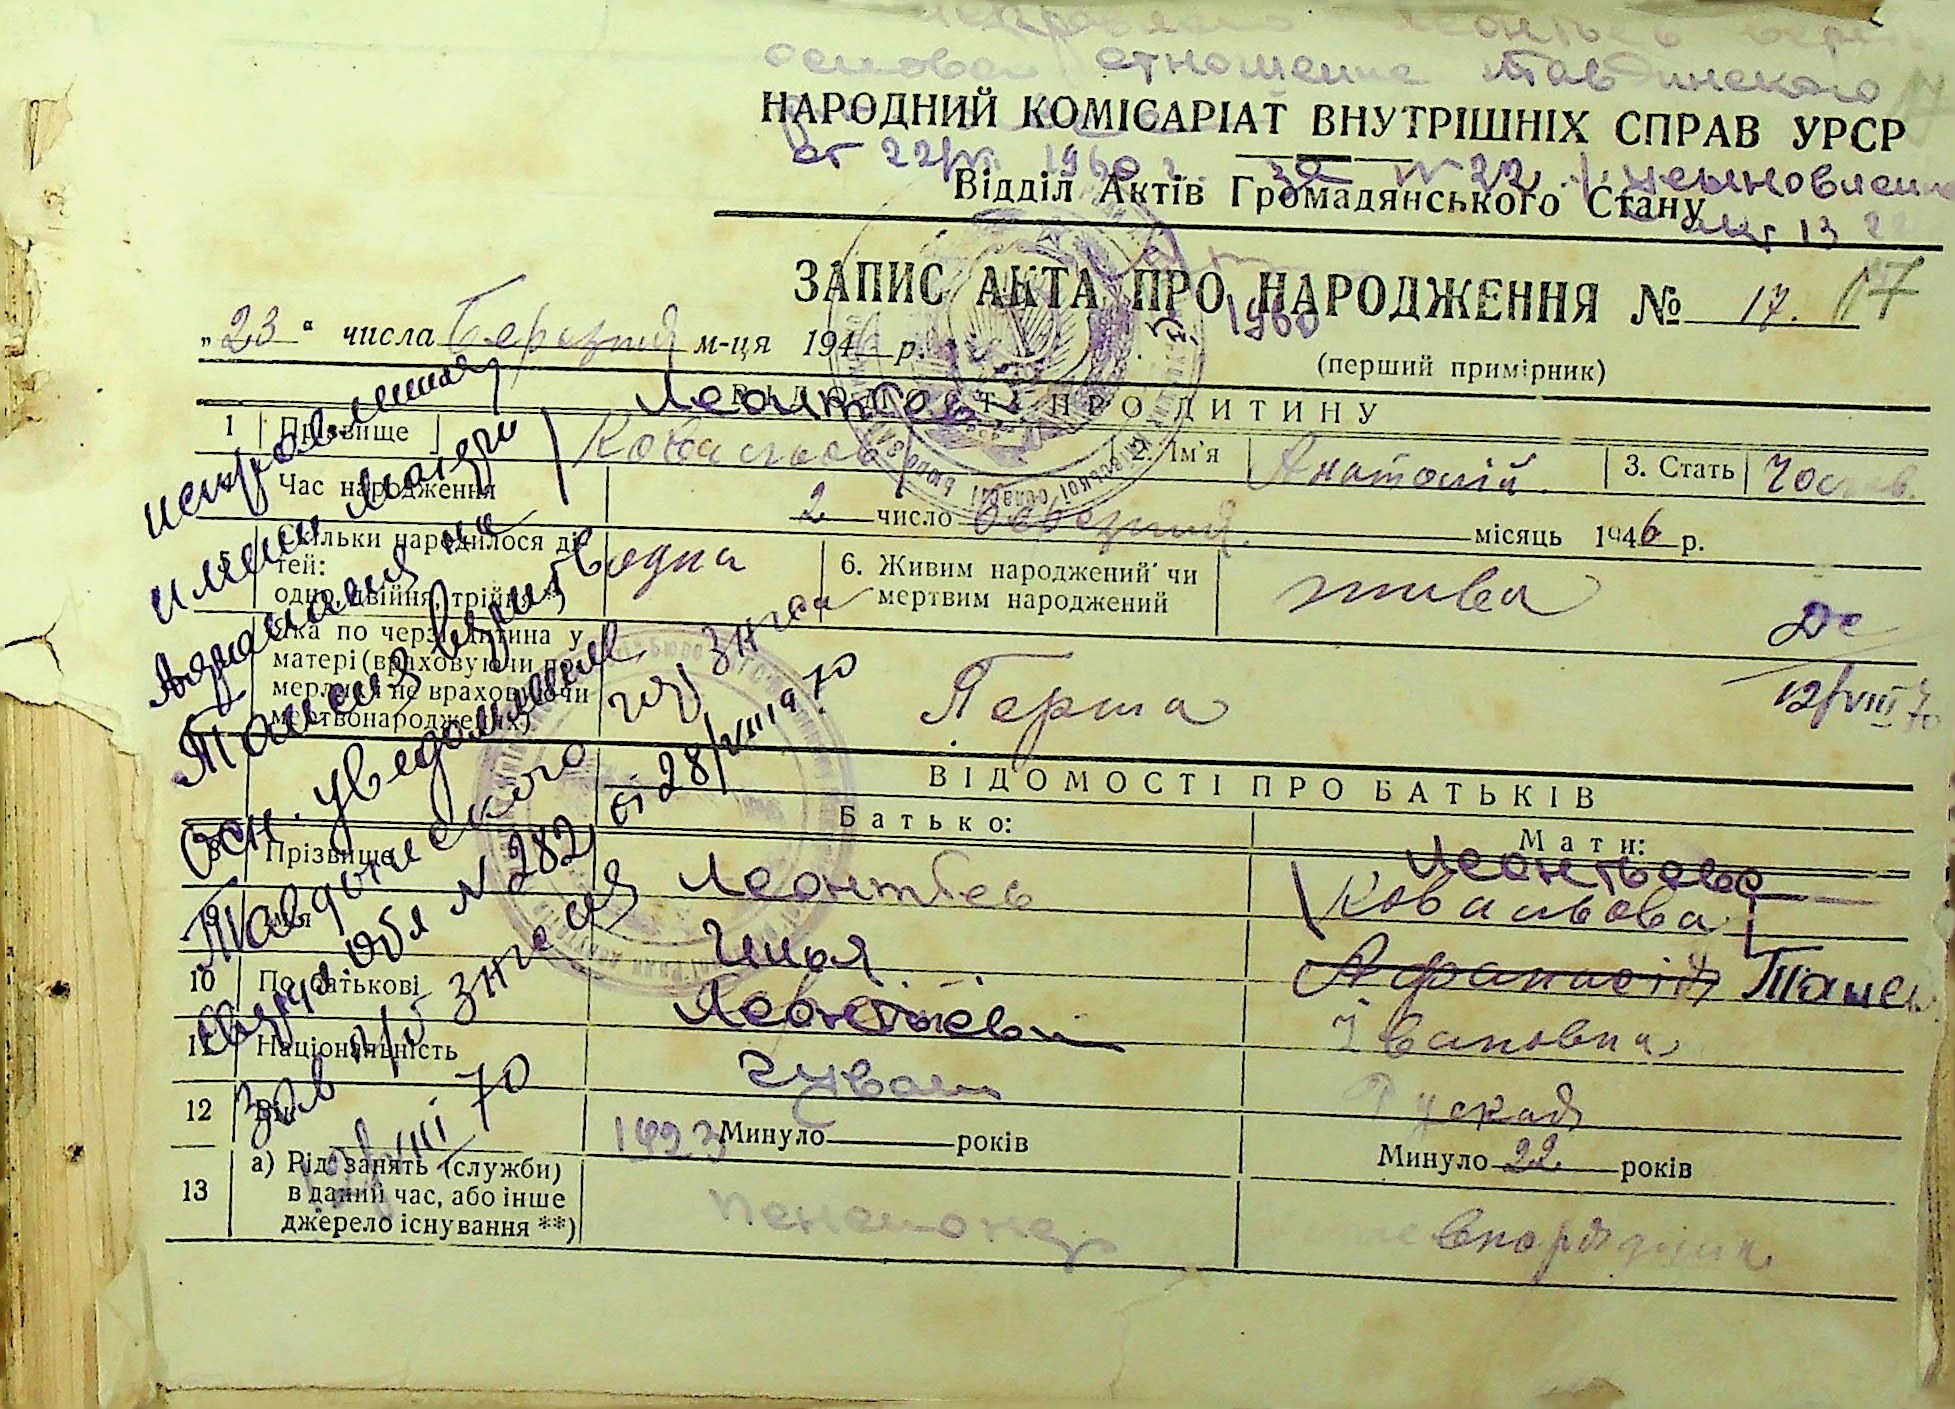 основан отношение Тавдинского
НАРОДНИЙ КОМІСАРІАТ ВНУТРІШНІХ СПРАВ УРСР
от 22/VI. 1960 г. за N 22 усыновлении
Відділ Актів Громадянського Стану
акт 13
ЗАПИС АКТА ПРО НАРОДЖЕННЯ № 17. 17
„23“ числа Березня м-ця 1946 р.
1960
(перший примірник)
ВІДОМОСТІ ПРО ДИТИНУ
Леонтьев
1 Прізвище Ковальов 2. Ім'я Анатолій 3. Стать Чолов.
Час народження 2 число березня місяць 1946 р.
Скільки народилося дітей:
одно, двійня, трійня *) одна
6. Живим народжений чи
мертвим народжений жива
Яка по черзі дитина у
матері (враховуючи по-
мерлих і не враховуючи
мертвонароджених) Перша
12/VIII 70
ВІДОМОСТІ ПРО БАТЬКІВ
Батько: Мати:
Леонтьева
8 Прізвище Леонтьев Ковальова
9 Ім'я Илья Афанасія Таисия
10 По батькові Леонтьеви Івановна
11 Національність чуваш Руская
12 Вік 1923 Минуло ___ років Минуло 22 років
13 а) Рід занять (служби)
в даний час, або інше
джерело існування **) пенсионер
исправленная
имени матери
на
Таисия
осн. уведомления
Тавдинского
гор ЗАГСа
обл N 282 от 28/VIII 70
Зав г/б ЗАГСа
12/VIII 70